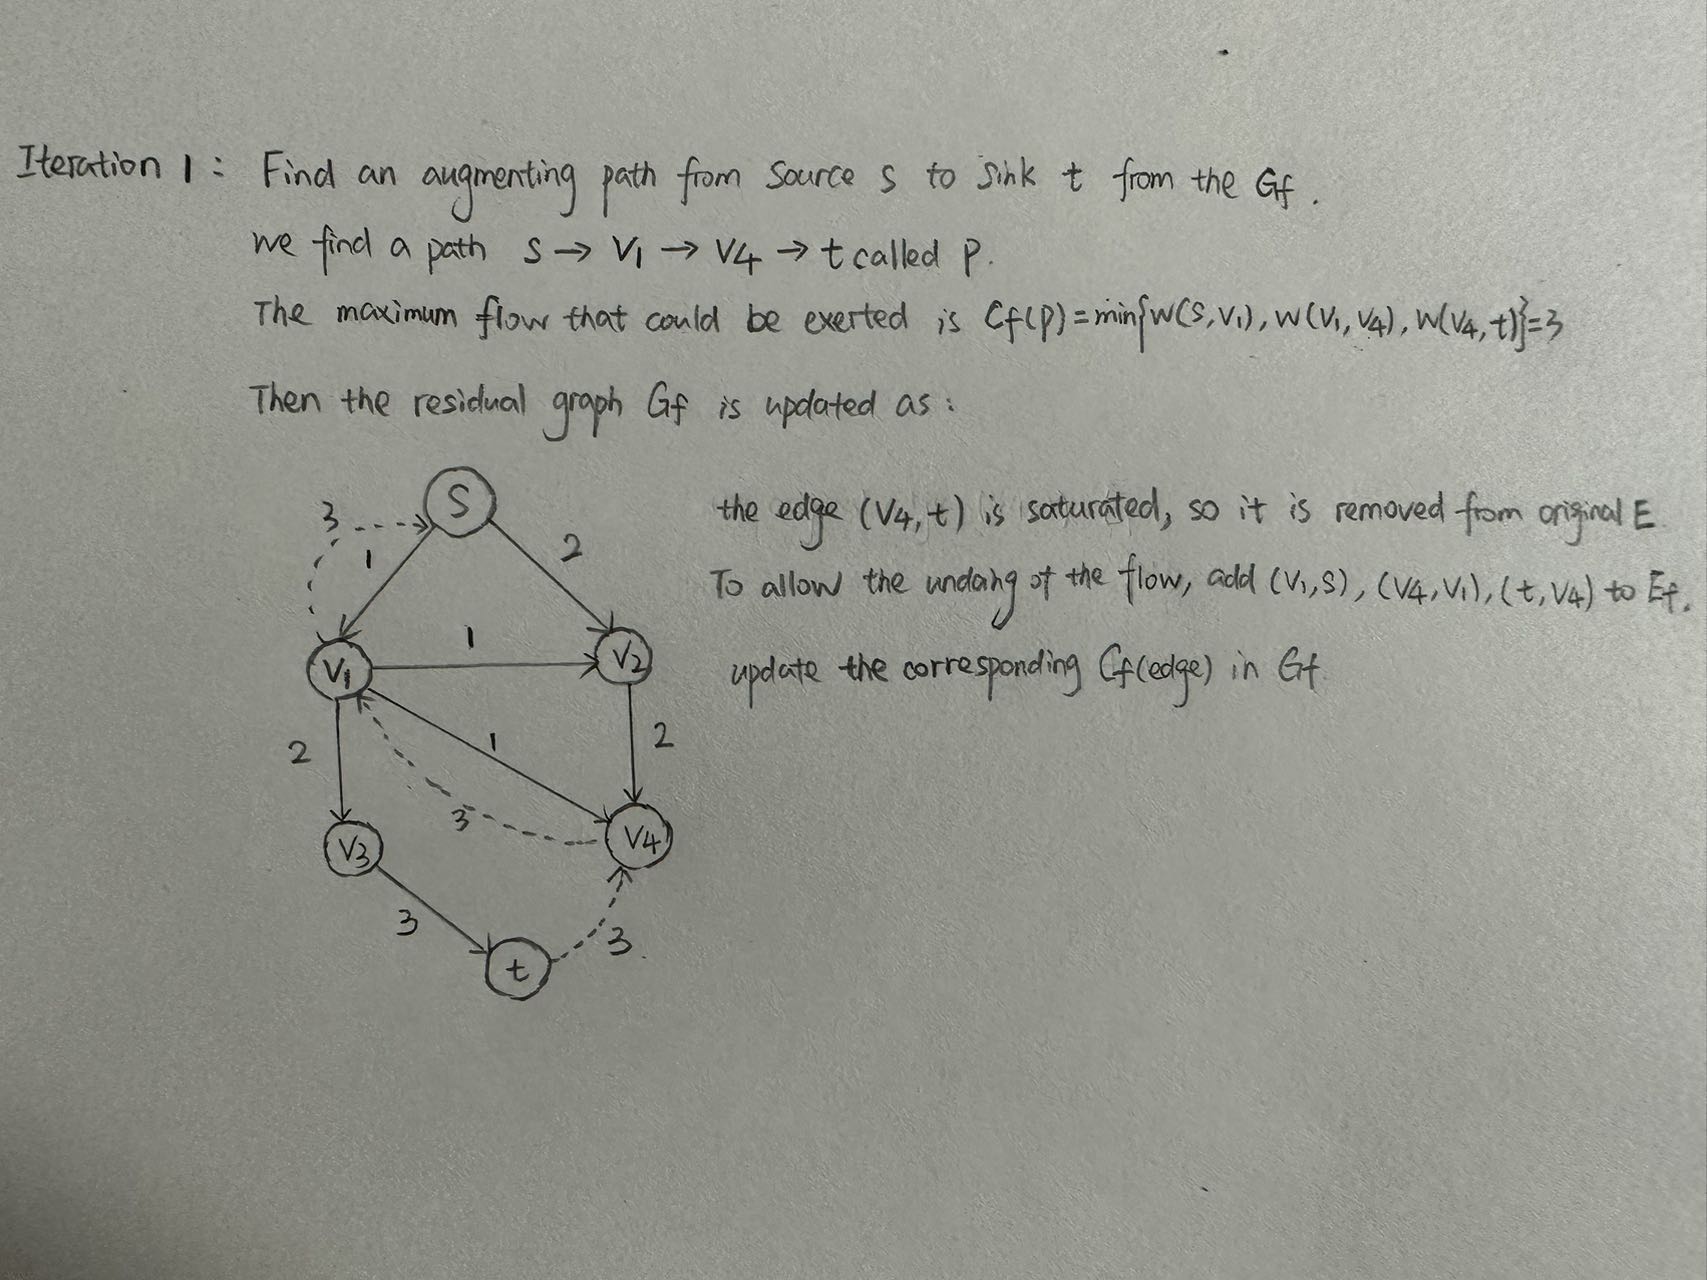 Iteration 1: Find an augmenting path from source s to sink t from the Gf.
we find a path s → V1 → V4 → t called p.
The maximum flow that could be exerted is Cf(p)=min{w(s,v1), w(v1,v4), w(v4,t)}=3
Then the residual graph Gf is updated as:
the edge (v4,t) is saturated, so it is removed from original E
To allow the undoing of the flow, add (v1,s), (v4,v1), (t,v4) to Ef.
update the corresponding Cf(edge) in Gf
S
3
1
2
1
V1
V2
2
1
2
3
V3
V4
3
3
t